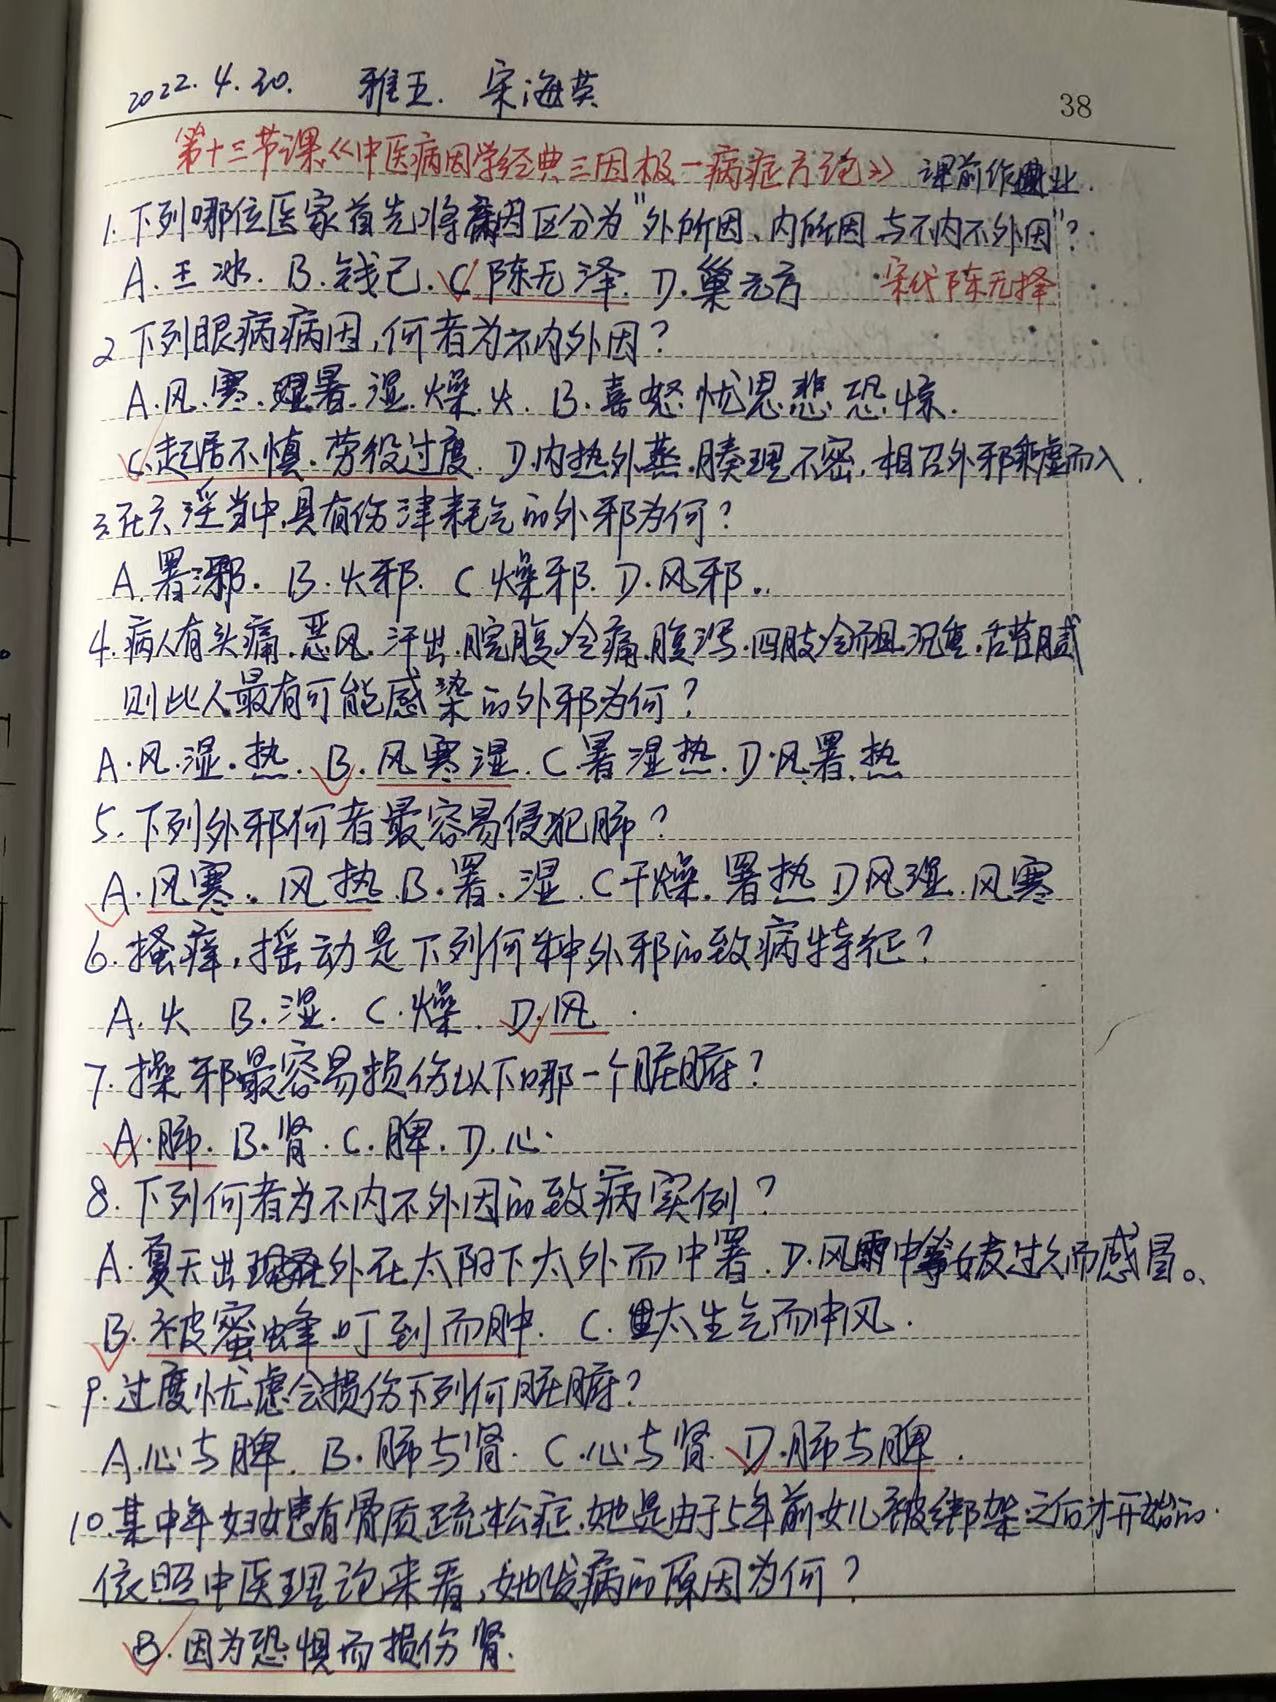 2022.4.30. 雅五. 宋海英
38
第十三节课《中医病因学经典三因极一病症方论》课前作业.
1.下列哪位医家首先将病因区分为"外所因、内所因与不内不外因"?
A.王冰. B.钱己. C陈无泽. D.巢元方 宋代陈无择
2下列眼病病因,何者为不内外因?
A.风.寒.暑.湿.燥.火. B.喜怒忧思悲恐惊.
C.起居不慎.劳役过度. D.内热外蒸.腠理不密,相召外邪乘虚而入.
3.在六淫当中,具有伤津耗气的外邪为何?
A.暑邪. B.火邪. C燥邪. D.风邪.
4.病人有头痛.恶风.汗出.脘腹冷痛.腹泻.四肢冷而且沉重.舌苔腻
则此人最有可能感染的外邪为何?
A.风.湿.热. B.风寒湿. C.暑湿热. D.风暑.热
5.下列外邪何者最容易侵犯肺?
A.风寒.风热 B.暑.湿. C干燥.暑热 D风湿.风寒
6.搔痒,摇动是下列何种外邪的致病特征?
A.火 B.湿. C.燥. D.风.
7.操邪最容易损伤以下哪一个脏腑?
A.肺. B.肾. C.脾. D.心.
8.下列何者为不内不外因的致病实例?
A.夏天出外在太阳下太外而中暑. D.风雨中等女友过久而感冒。
B.被蜜蜂叮到而肿. C.太生气而中风.
9.过度忧虑会损伤下列何脏腑?
A.心与脾. B.肺与肾. C.心与肾. D.肺与脾.
10.某中年妇女患有骨质疏松症.她是由于5年前女儿被绑架之后才开始的.
依照中医理论来看,她发病的原因为何?
B.因为恐惧而损伤肾.